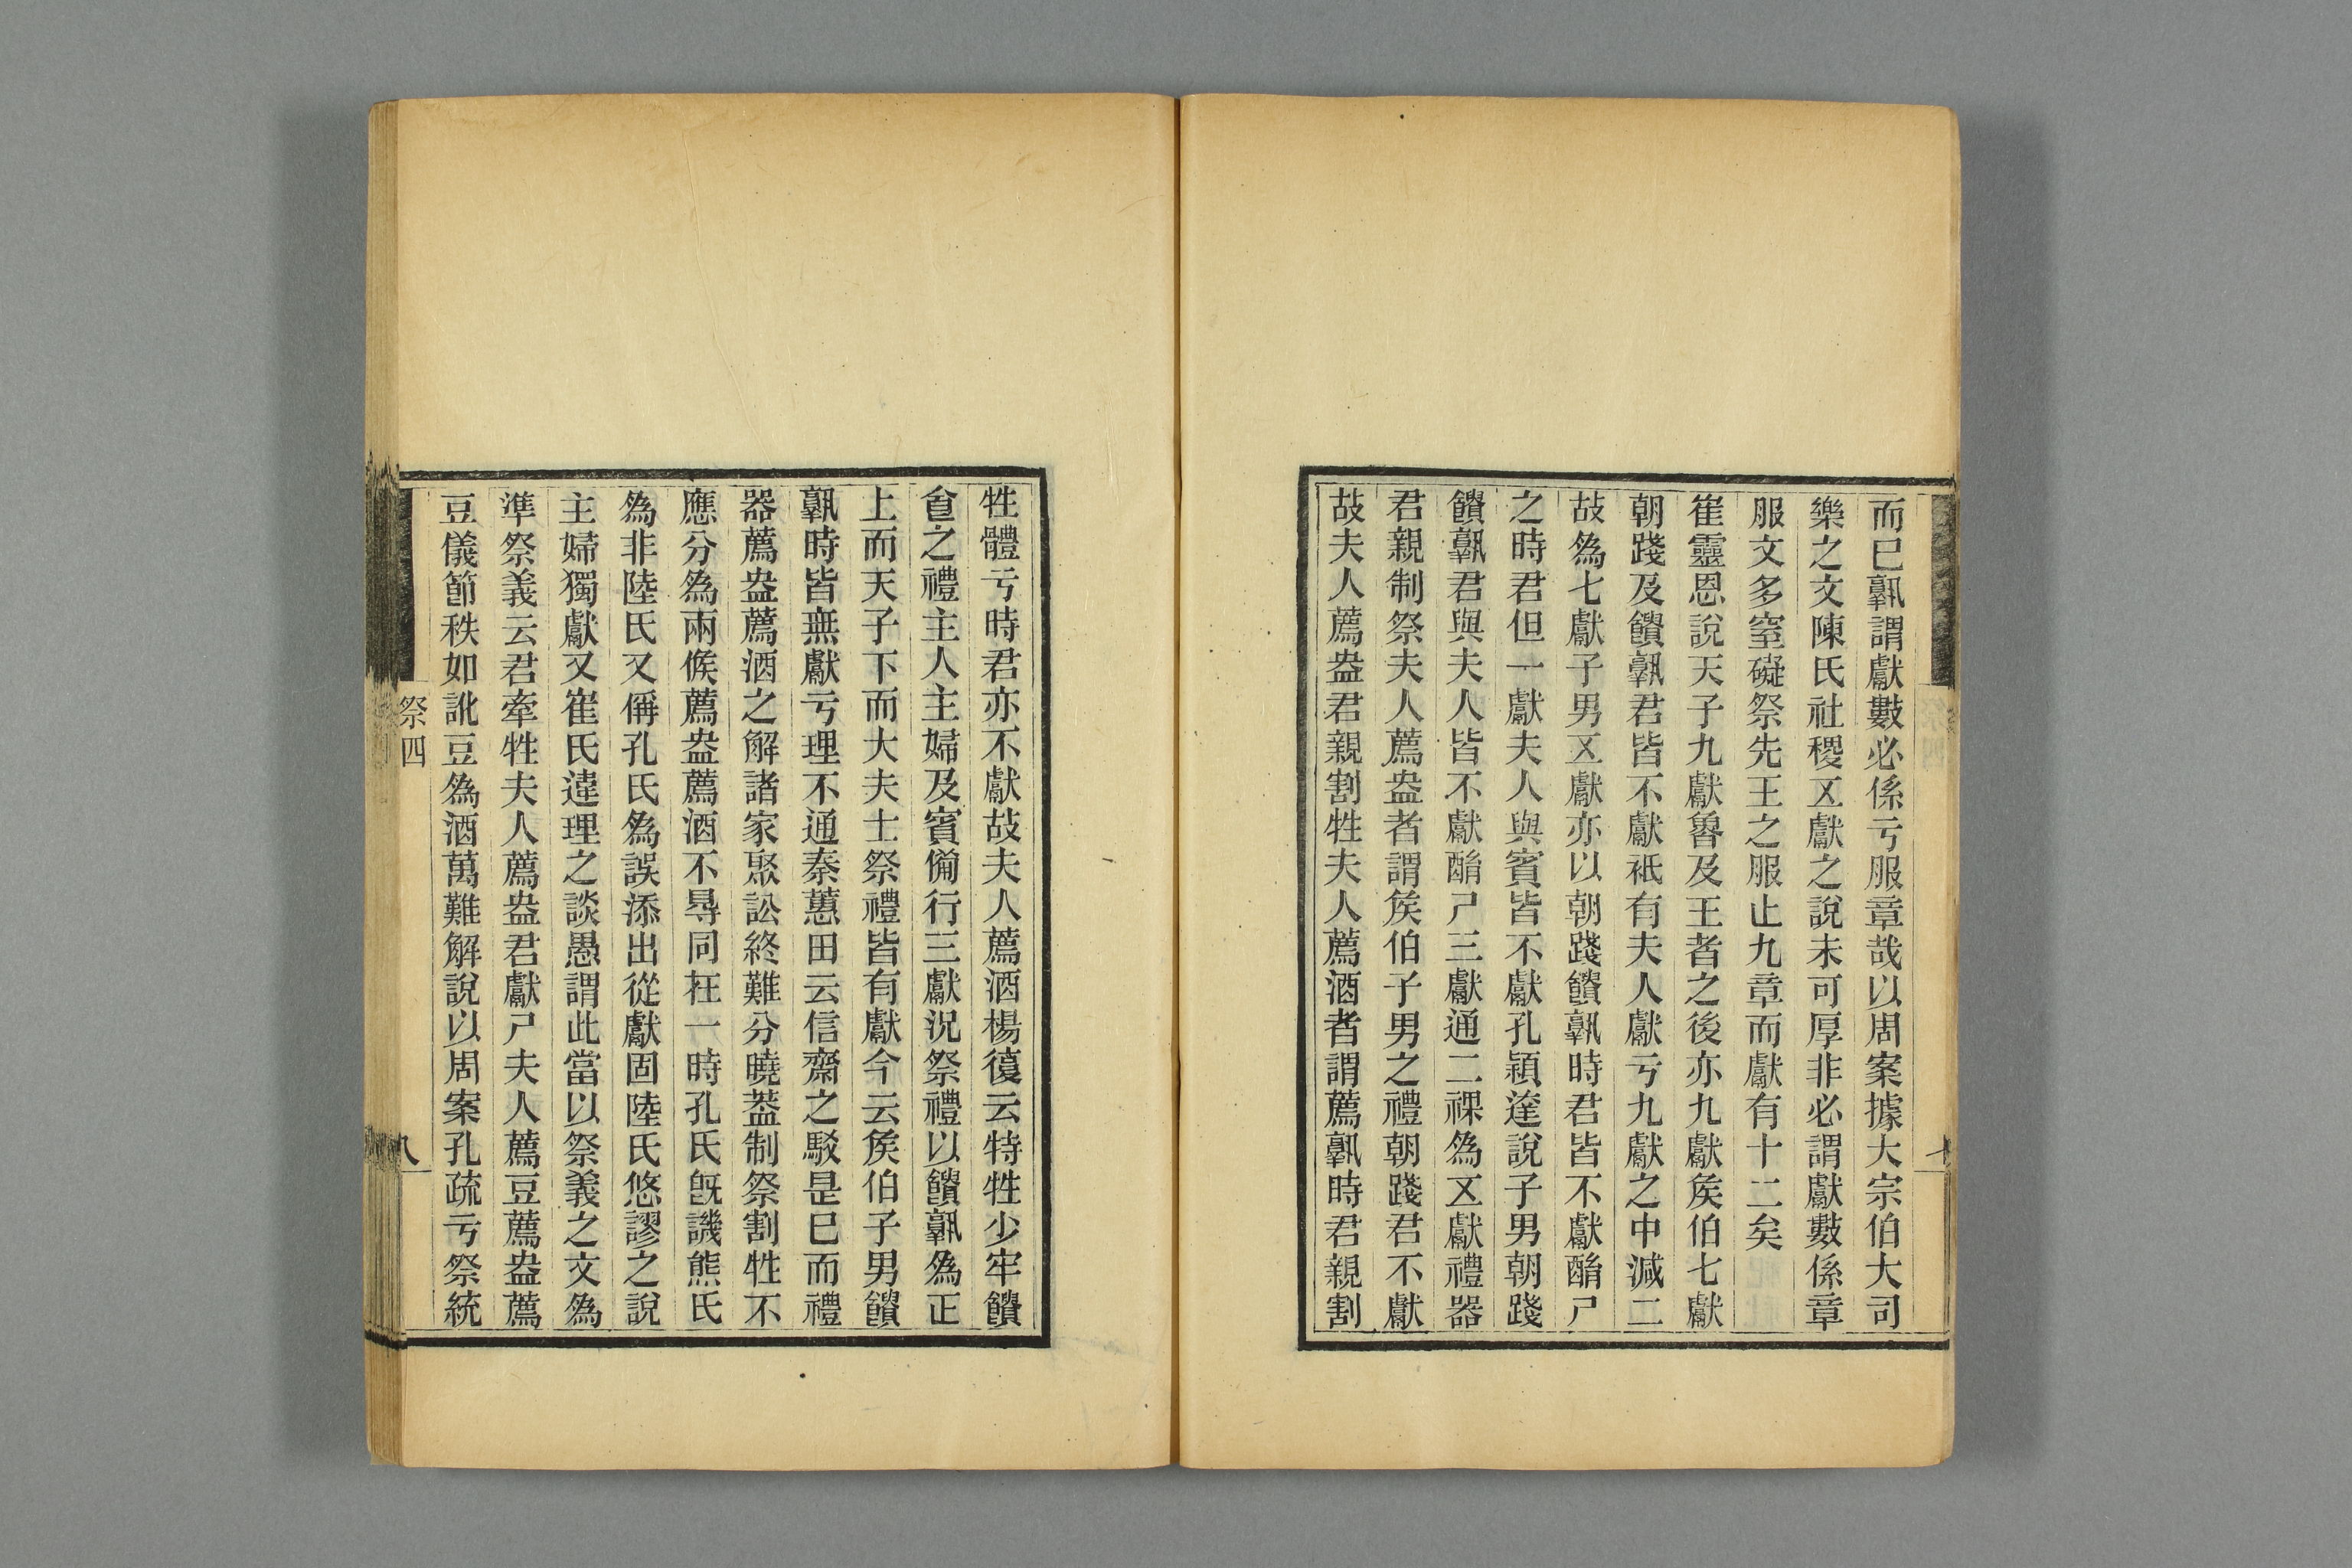 而已孰謂獻數必係亏服章哉以周案據大宗伯大司
樂之文陳氏社稷五獻之說未可厚非必謂獻數係章
服文多窒礙祭先王之服止九章而獻有十二矣
崔靈恩說天子九獻魯及王者之後亦九獻矦伯七獻
朝踐及饋孰君皆不獻祇有夫人獻亏九獻之中減二
故為七獻子男五獻亦以朝踐饋孰時君皆不獻酳尸
之時君但一獻夫人與賓皆不獻孔穎達說子男朝踐
饋孰君與夫人皆不獻酳尸三獻通二祼為五獻禮器
君親制祭夫人薦盎者謂矦伯子男之禮朝踐君不獻
故夫人薦盎君親割牲夫人薦酒者謂薦孰時君親割
牲體亏時君亦不獻故夫人薦酒楊復云特牲少牢饋
食之禮主人主婦及賓僃行三獻況祭禮以饋孰為正
上而天子下而大夫士祭禮皆有獻今云矦伯子男饋
孰時皆無獻亏理不通秦蕙田云信齋之駁是已而禮
器薦盎薦酒之解諸家聚訟終難分曉葢制祭割牲不
應分為兩候薦盎薦酒不㝵同在一時孔氏旣譏熊氏
為非陸氏又偁孔氏為誤添出從獻固陸氏悠謬之說
主婦獨獻又崔氏違理之談愚謂此當以祭義之文為
準祭義云君牽牲夫人薦盎君獻尸夫人薦豆薦盎薦
豆儀節秩如訛豆為酒萬難解說以周案孔疏亏祭統
祭四
八